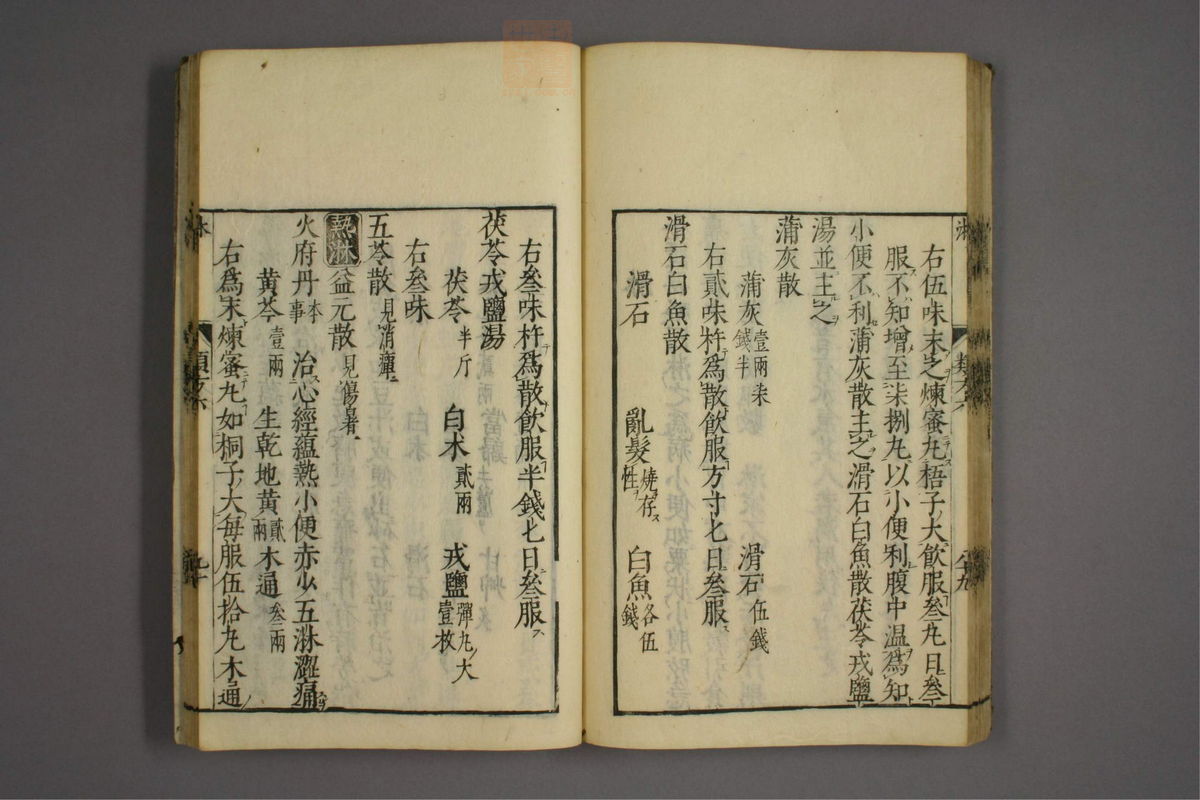 右伍味末之煉蜜丸梧子大飲服叁丸日叁
服不知增至柒捌丸以小便利腹中温爲知
小便不利蒲灰散主之滑石白魚散茯苓戎鹽
湯並主之
蒲灰散
蒲灰壹兩柒錢半 滑石伍錢
右貳味杵爲散飲服方寸匕日叁服
滑石白魚散
滑石 亂髮燒存性 白魚各伍錢
右叁味杵爲散飲服半錢匕日叁服
茯苓戎鹽湯
茯苓半斤 白朮貳兩 戎鹽彈丸大壹枚
右叁味
五苓散見消癉
熱淋 益元散見傷暑
火府丹本事 治心經蘊熱小便赤少五淋澀痛
黄芩壹兩 生乾地黄貳兩 木通叁兩
右爲末煉蜜丸如桐子大每服伍拾丸木通